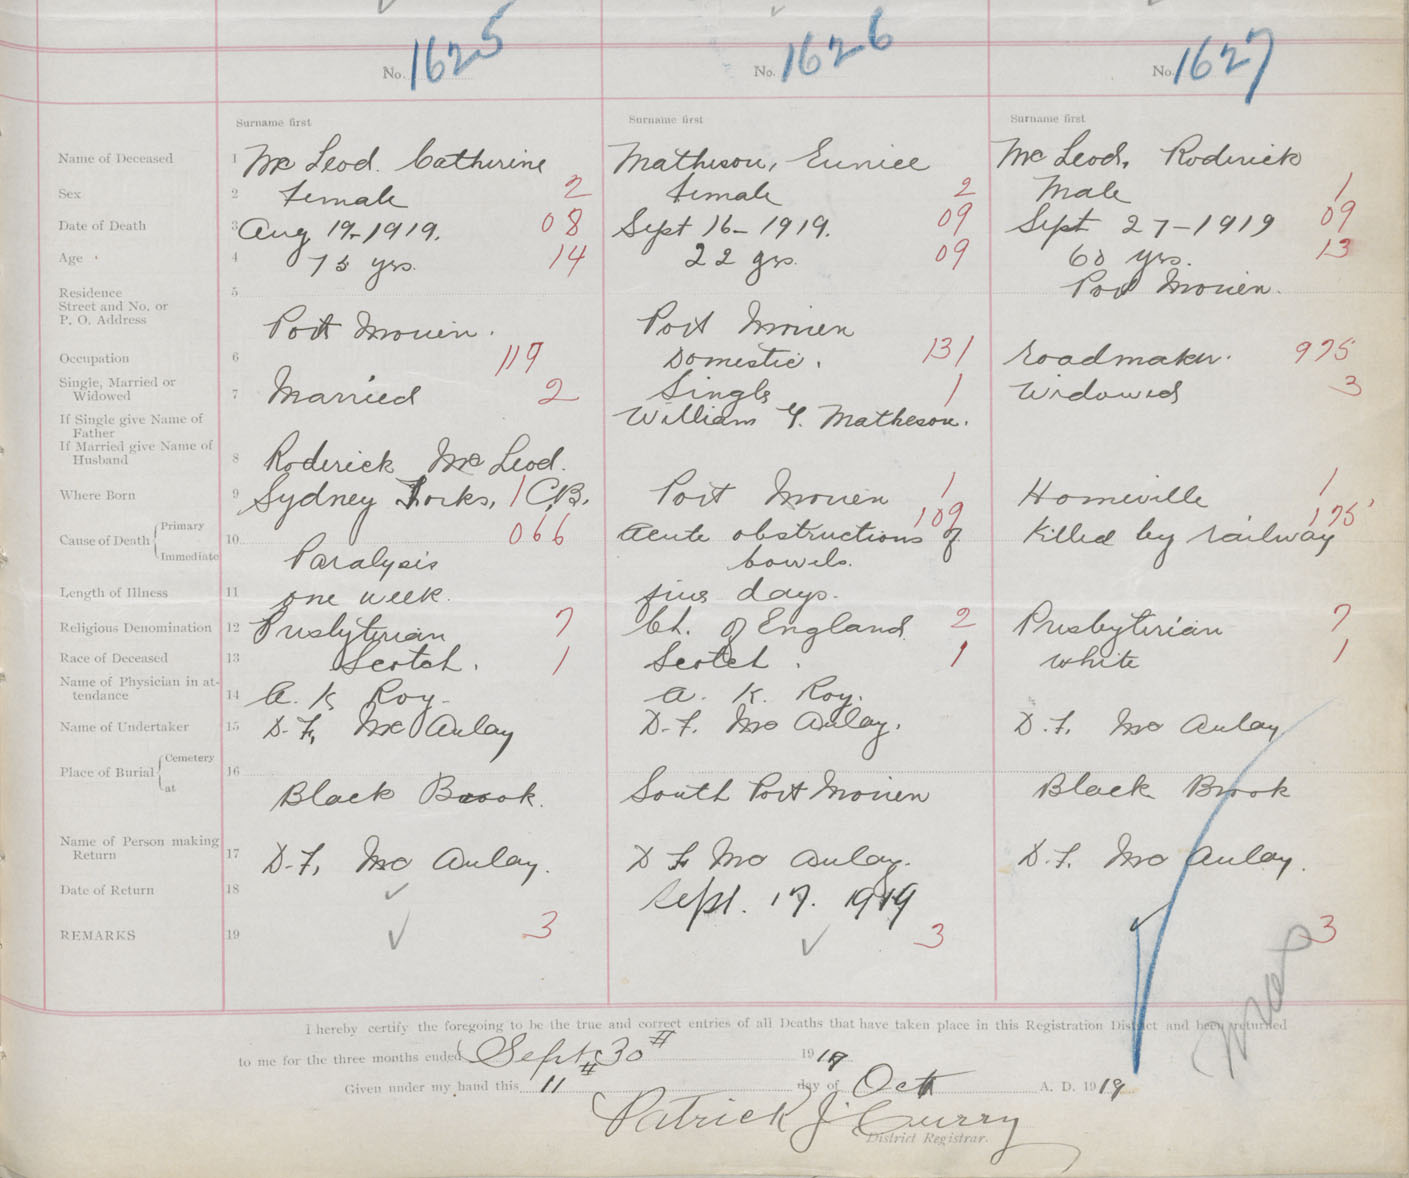 No. 1625 No. 1626 No. 1627
Surname first Surname first Surname first
Name of Deceased 1 Mc Leod. Catherine Matheson, Eunice Mc Leod, Roderick
Sex 2 Female 2 Female 2 Male 1
Date of Death 3 Aug 19-1919. 08 Sept 16-1919. 09 Sept 27-1919 09
Age 4 75 yrs. 14 22 yrs. 09 60 yrs. 13
Residence 5 Port Morien.
Street and No. or
P. O. Address Port Morien. Port Morien
Occupation 6 119 Domestic. 131 roadmaker. 975
Single, Married or
Widowed 7 Married 2 Single 1 Widowed 3
If Single give Name of William Y. Matheson.
Father
If Married give Name of
Husband 8 Roderick Mc Leod.
Where Born 9 Sydney Forks, 1 C.B. Port Morien 1 Homeville 1
Cause of Death Primary 10 066 Acute obstructions of 109 Killed by railway 175
Immediate Paralysis bowels.
Length of Illness 11 one week. five days.
Religious Denomination 12 Presbyterian 7 Ch. of England 2 Presbyterian 7
Race of Deceased 13 Scotch. 1 Scotch. 1 White 1
Name of Physician in at-
tendance 14 A. K Roy. A. K. Roy.
Name of Undertaker 15 D. F. Mc Aulay D. F. Mc Aulay. D. F. Mc Aulay
Place of Burial Cemetery 16
at Black Brook. South Port Morien Black Brook
Name of Person making
Return 17 D. F. Mc Aulay. D F Mc Aulay. D. F. Mc Aulay.
Date of Return 18 Sept. 17. 1919
REMARKS 19 3 3 3
I hereby certify the foregoing to be the true and correct entries of all Deaths that have taken place in this Registration District and been returned
to me for the three months ended Sept 30th 1919
Given under my hand this 11th day of Oct A. D. 1919
Patrick J. Curry
District Registrar.